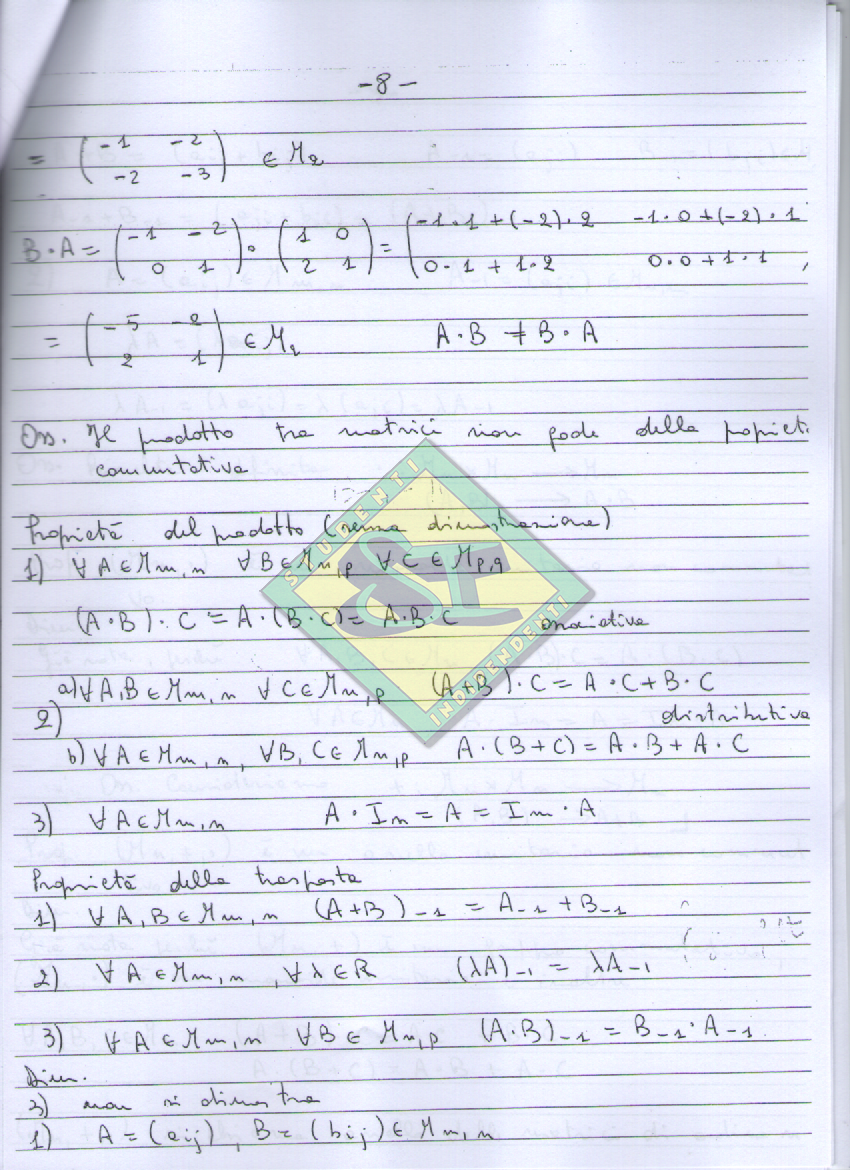 -8-
= ( -1 -2 ) ∈ M2
( -2 -3 )
B·A = ( -1 -2 ) · ( 1 0 ) = ( -1·1+(-2)·2 -1·0+(-2)·1
( 0 1 ) ( 2 1 ) ( 0·1+1·2 0·0+1·1 ,
= ( -5 -2 ) ∈ M2 A·B ≠ B·A
( 2 1 )
Oss. Il prodotto tra matrici non gode della propriet
commutativa
Proprietà del prodotto (senza dimostrazione)
1) ∀ A ∈ Mm,n ∀ B ∈ Mn,p ∀ C ∈ Mp,q
(A·B)·C = A·(B·C) = A·B·C associativa
a) ∀ A,B ∈ Mm,n ∀ C ∈ Mn,p (A+B)·C = A·C+B·C
2) distributiva
b) ∀ A ∈ Mm,n, ∀ B,C ∈ Mn,p A·(B+C) = A·B+A·C
3) ∀ A ∈ Mm,n A·In = A = Im·A
Proprietà della trasposta
1) ∀ A,B ∈ Mm,n (A+B)-1 = A-1 + B-1
2) ∀ A ∈ Mm,n, ∀ λ ∈ R (λA)-1 = λA-1
3) ∀ A ∈ Mm,n ∀ B ∈ Mn,p (A·B)-1 = B-1·A-1
Dim.
3) non si dimostra
1) A = (aij), B = (bij) ∈ Mm,n
STUDENTI
INDIPENDENTI